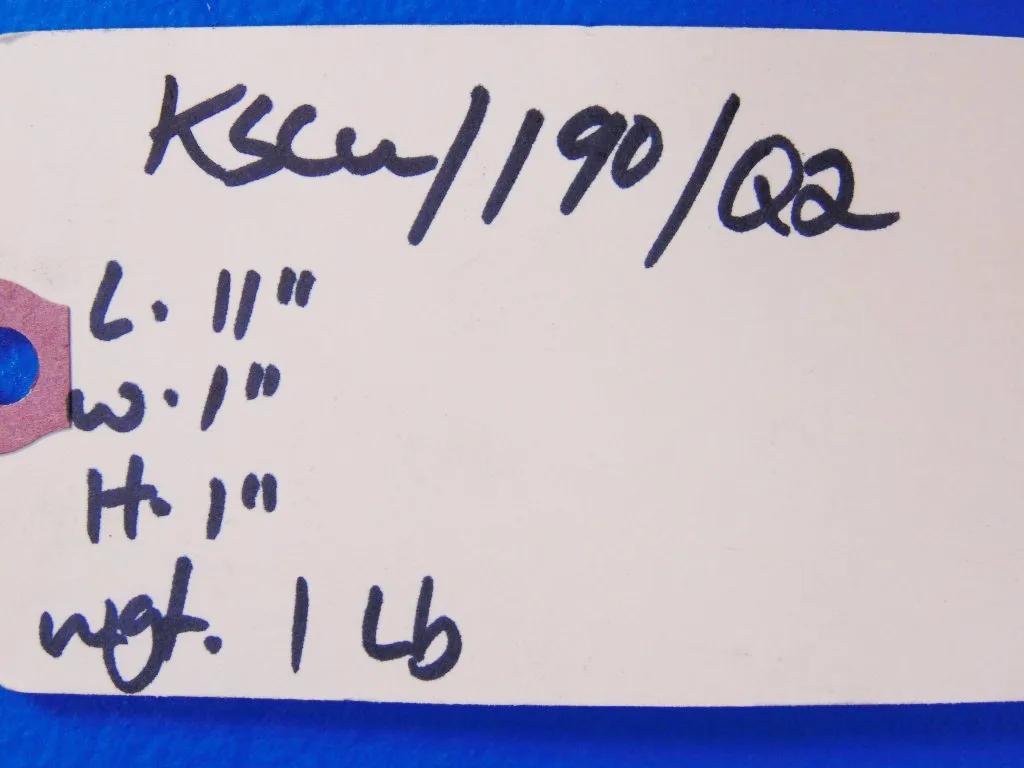 KSCu/190/Q2
L. 11"
W. 1"
H. 1"
wgt. 1 Lb